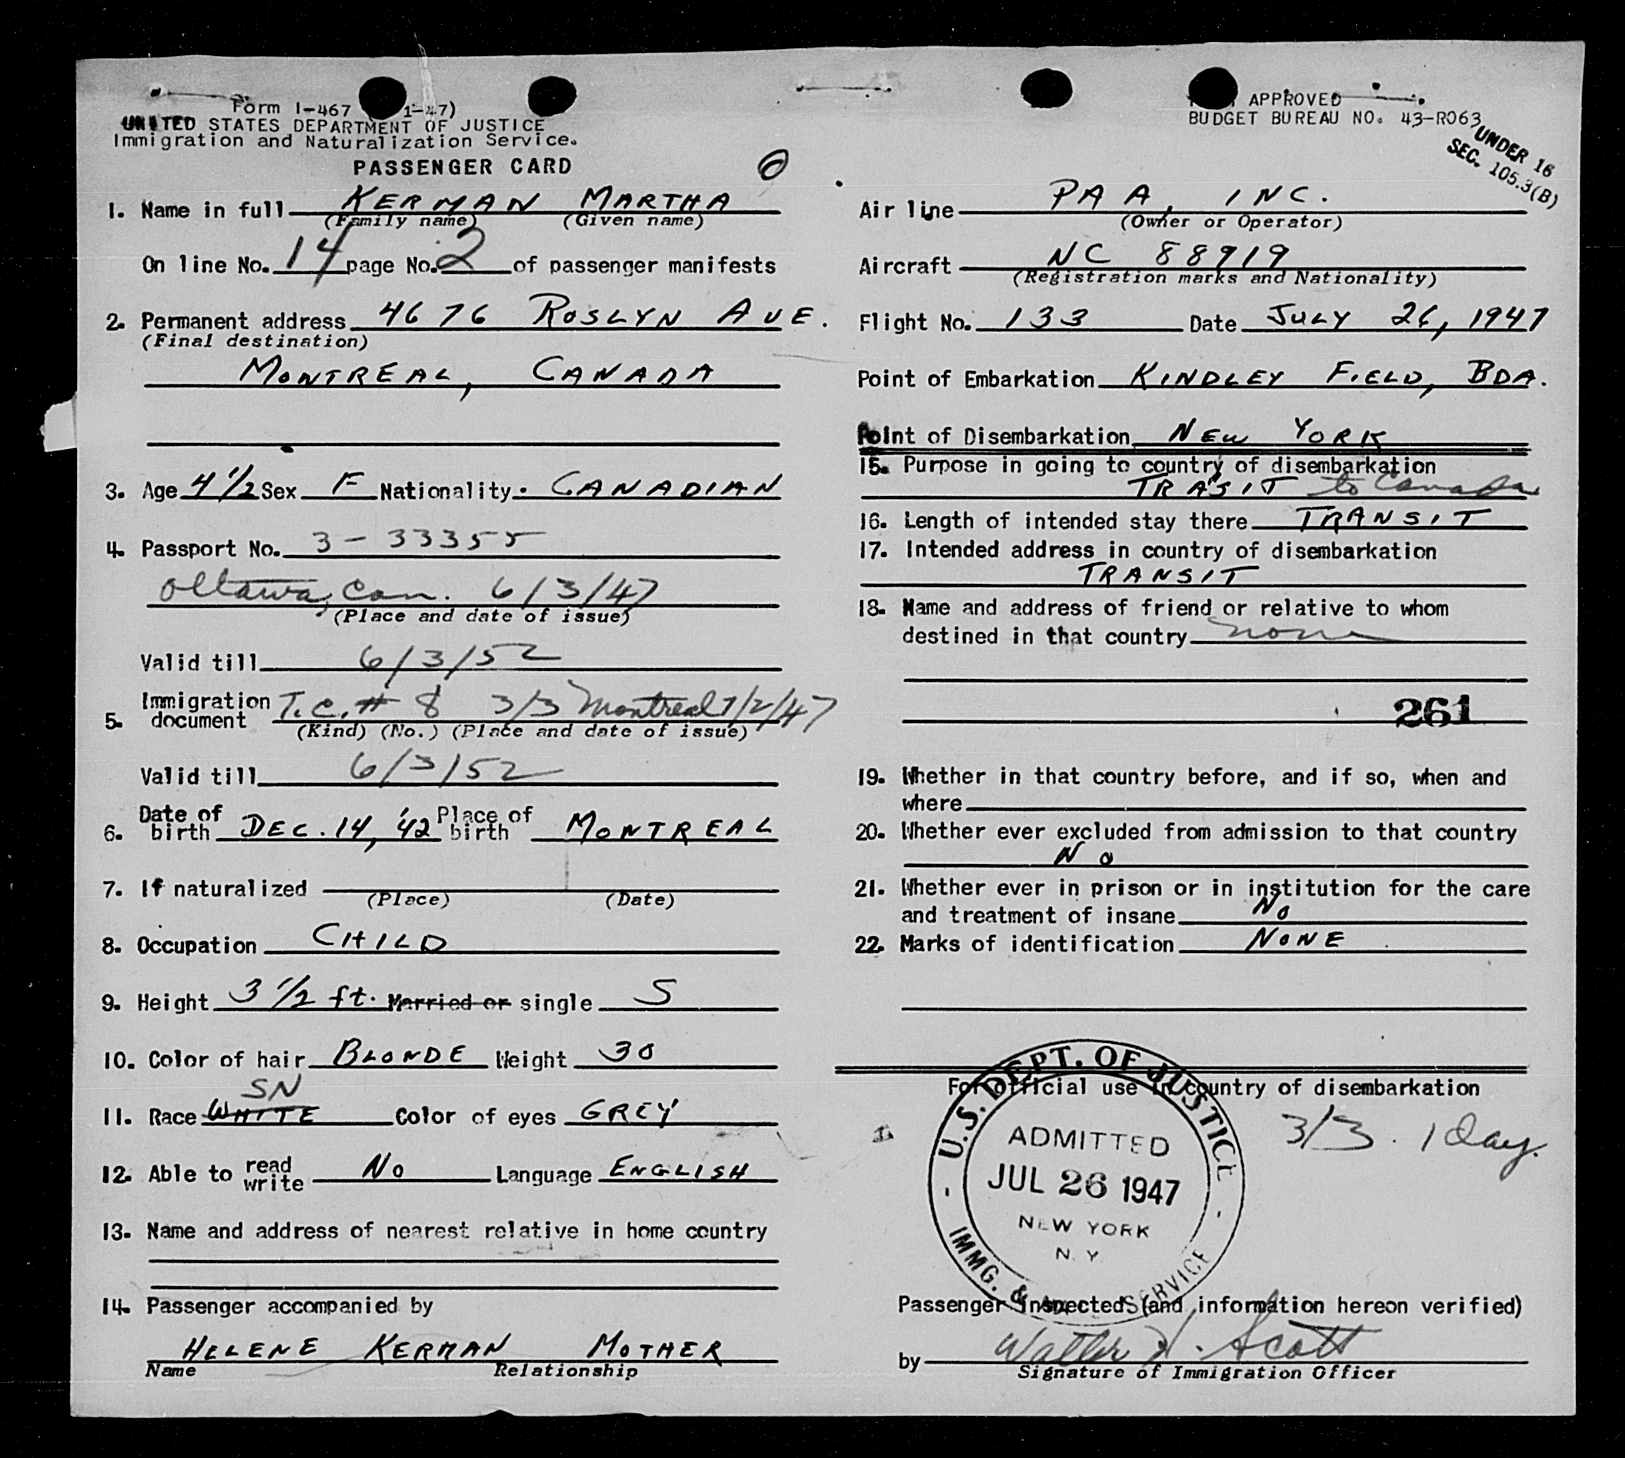 Form I-467 1-47)
UNITED STATES DEPARTMENT OF JUSTICE
Immigration and Naturalization Service.
PASSENGER CARD
1. Name in full KERMAN MARTHA
(Family name) (Given name)
On line No. 14 page No. 2 of passenger manifests
2. Permanent address 4676 ROSLYN AVE.
(Final destination)
MONTREAL, CANADA
3. Age 4 1/2 Sex F Nationality. CANADIAN
4. Passport No. 3-33355
Ottawa, Can. 6/3/47
(Place and date of issue)
Valid till 6/3/52
5. Immigration document T.C.# 8 3/3 Montreal 7/2/47
(Kind) (No.) (Place and date of issue)
Valid till 6/3/52
6. Date of birth DEC. 14, '42 Place of birth MONTREAL
7. If naturalized
(Place) (Date)
8. Occupation CHILD
9. Height 3 1/2 ft. Married or single S
10. Color of hair BLONDE Weight 30
SN
11. Race WHITE Color of eyes GREY
12. Able to read write No Language ENGLISH
13. Name and address of nearest relative in home country
14. Passenger accompanied by
HELENE KERMAN MOTHER
Name Relationship
APPROVED
BUDGET BUREAU NO. 43-R063
UNDER 16
SEC. 105.3(B)
Air line PAA, INC.
(Owner or Operator)
Aircraft NC 88919
(Registration marks and Nationality)
Flight No. 133 Date JULY 26, 1947
Point of Embarkation KINDLEY FIELD, BDA.
Point of Disembarkation NEW YORK
15. Purpose in going to country of disembarkation
TRASIT to Canada
16. Length of intended stay there TRANSIT
17. Intended address in country of disembarkation
TRANSIT
18. Name and address of friend or relative to whom
destined in that country none
261
19. Whether in that country before, and if so, when and
where
20. Whether ever excluded from admission to that country
No
21. Whether ever in prison or in institution for the care
and treatment of insane No
22. Marks of identification NONE
For official use in country of disembarkation
3/3. 1 Day.
U.S. DEPT. OF JUSTICE
ADMITTED
JUL 26 1947
NEW YORK
N.Y
IMMG. & SERVICE
Passenger Inspected (and information hereon verified)
by Walter H. Scott
Signature of Immigration Officer